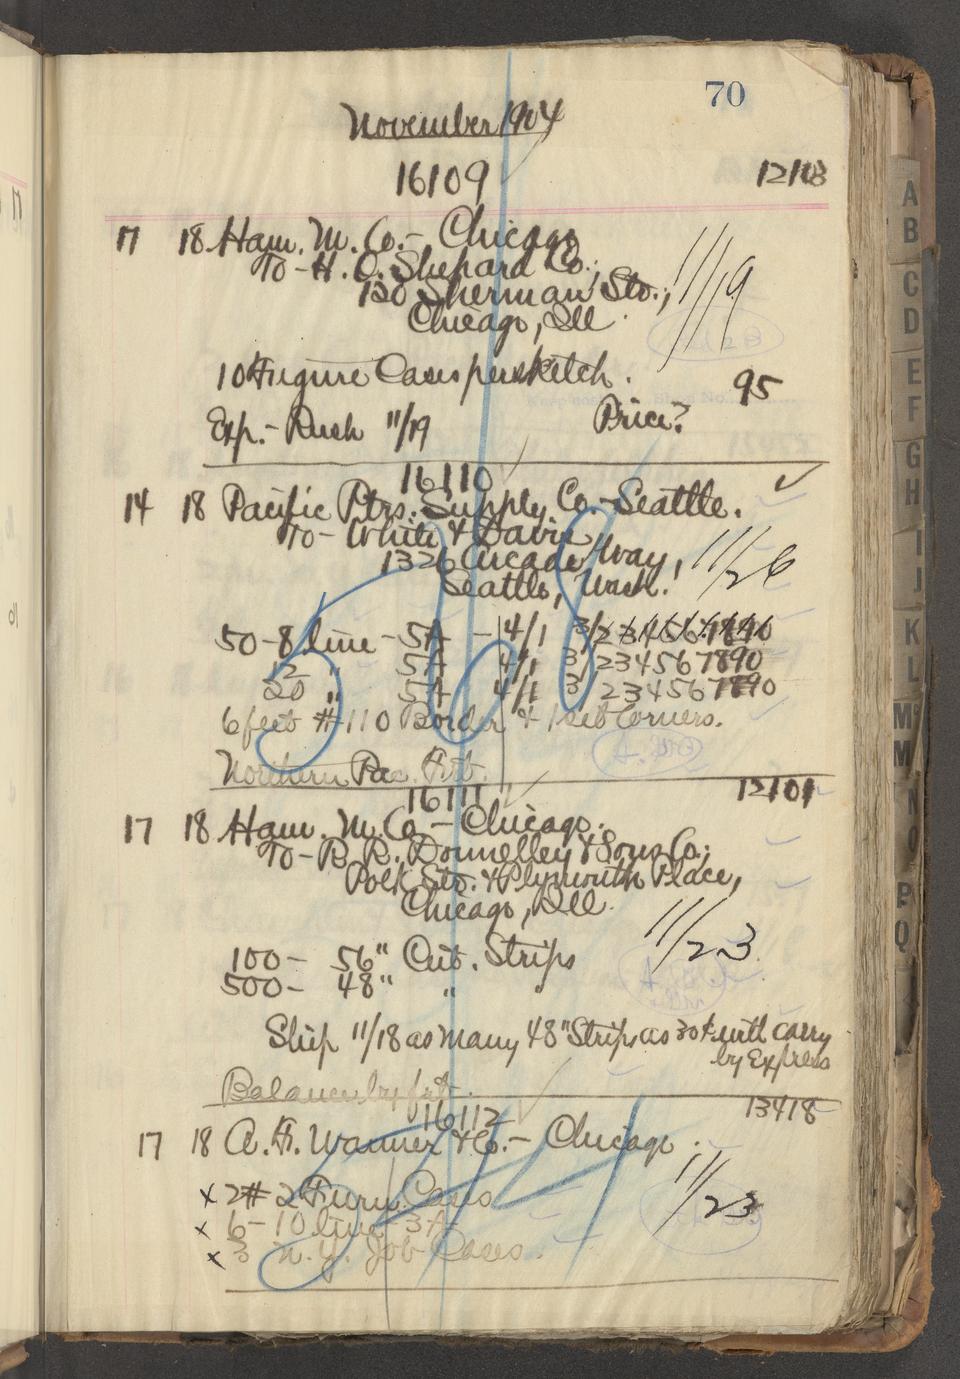 70
November 1904
16109 12113
17 18 Ham. M. Co. - Chicago
To - H. O. Shepard Co.,
120 Sherman Sts.,
Chicago, Ill. 11/19
10 Figure Cases per sketch. 95
Exp. - Rush 11/19 Price?
16110
14 18 Pacific Ptrs. Supply Co. - Seattle.
To - White & Davis,
1326 Arcade Way,
Seattle, Wash. 11/26
50 - 8 line - 5A - 4/1 3/2 3 4 5 6 7 8 9 0
12 " 5A 4/1 3/2 3 4 5 6 7 8 9 0
20 " 5A 4/1 3/2 3 4 5 6 7 8 9 0
6 feet #110 Border & 1 set Corners.
Northern Pac. Frt.
568
16111 12101
17 18 Ham. M. Co. - Chicago.
To - R. R. Donnelley & Sons Co.,
Polk Sts. & Plymouth Place,
Chicago, Ill.
100 - 56" Cut. Strips 11/23
500 - 48" " "
Ship 11/18 as many 48" Strips as 30# will carry
by Express
Balance by frt.
16112 13418
17 18 A. F. Wanner & Co. - Chicago.
x 2 # 2 Furn Cases 11/23
x 6 - 10 line - 3A
x 3 N. Y. Job Cases.
544
A
B
C
D
E
F
G
H
I
J
K
L
Mc
M
N
O
P
Q